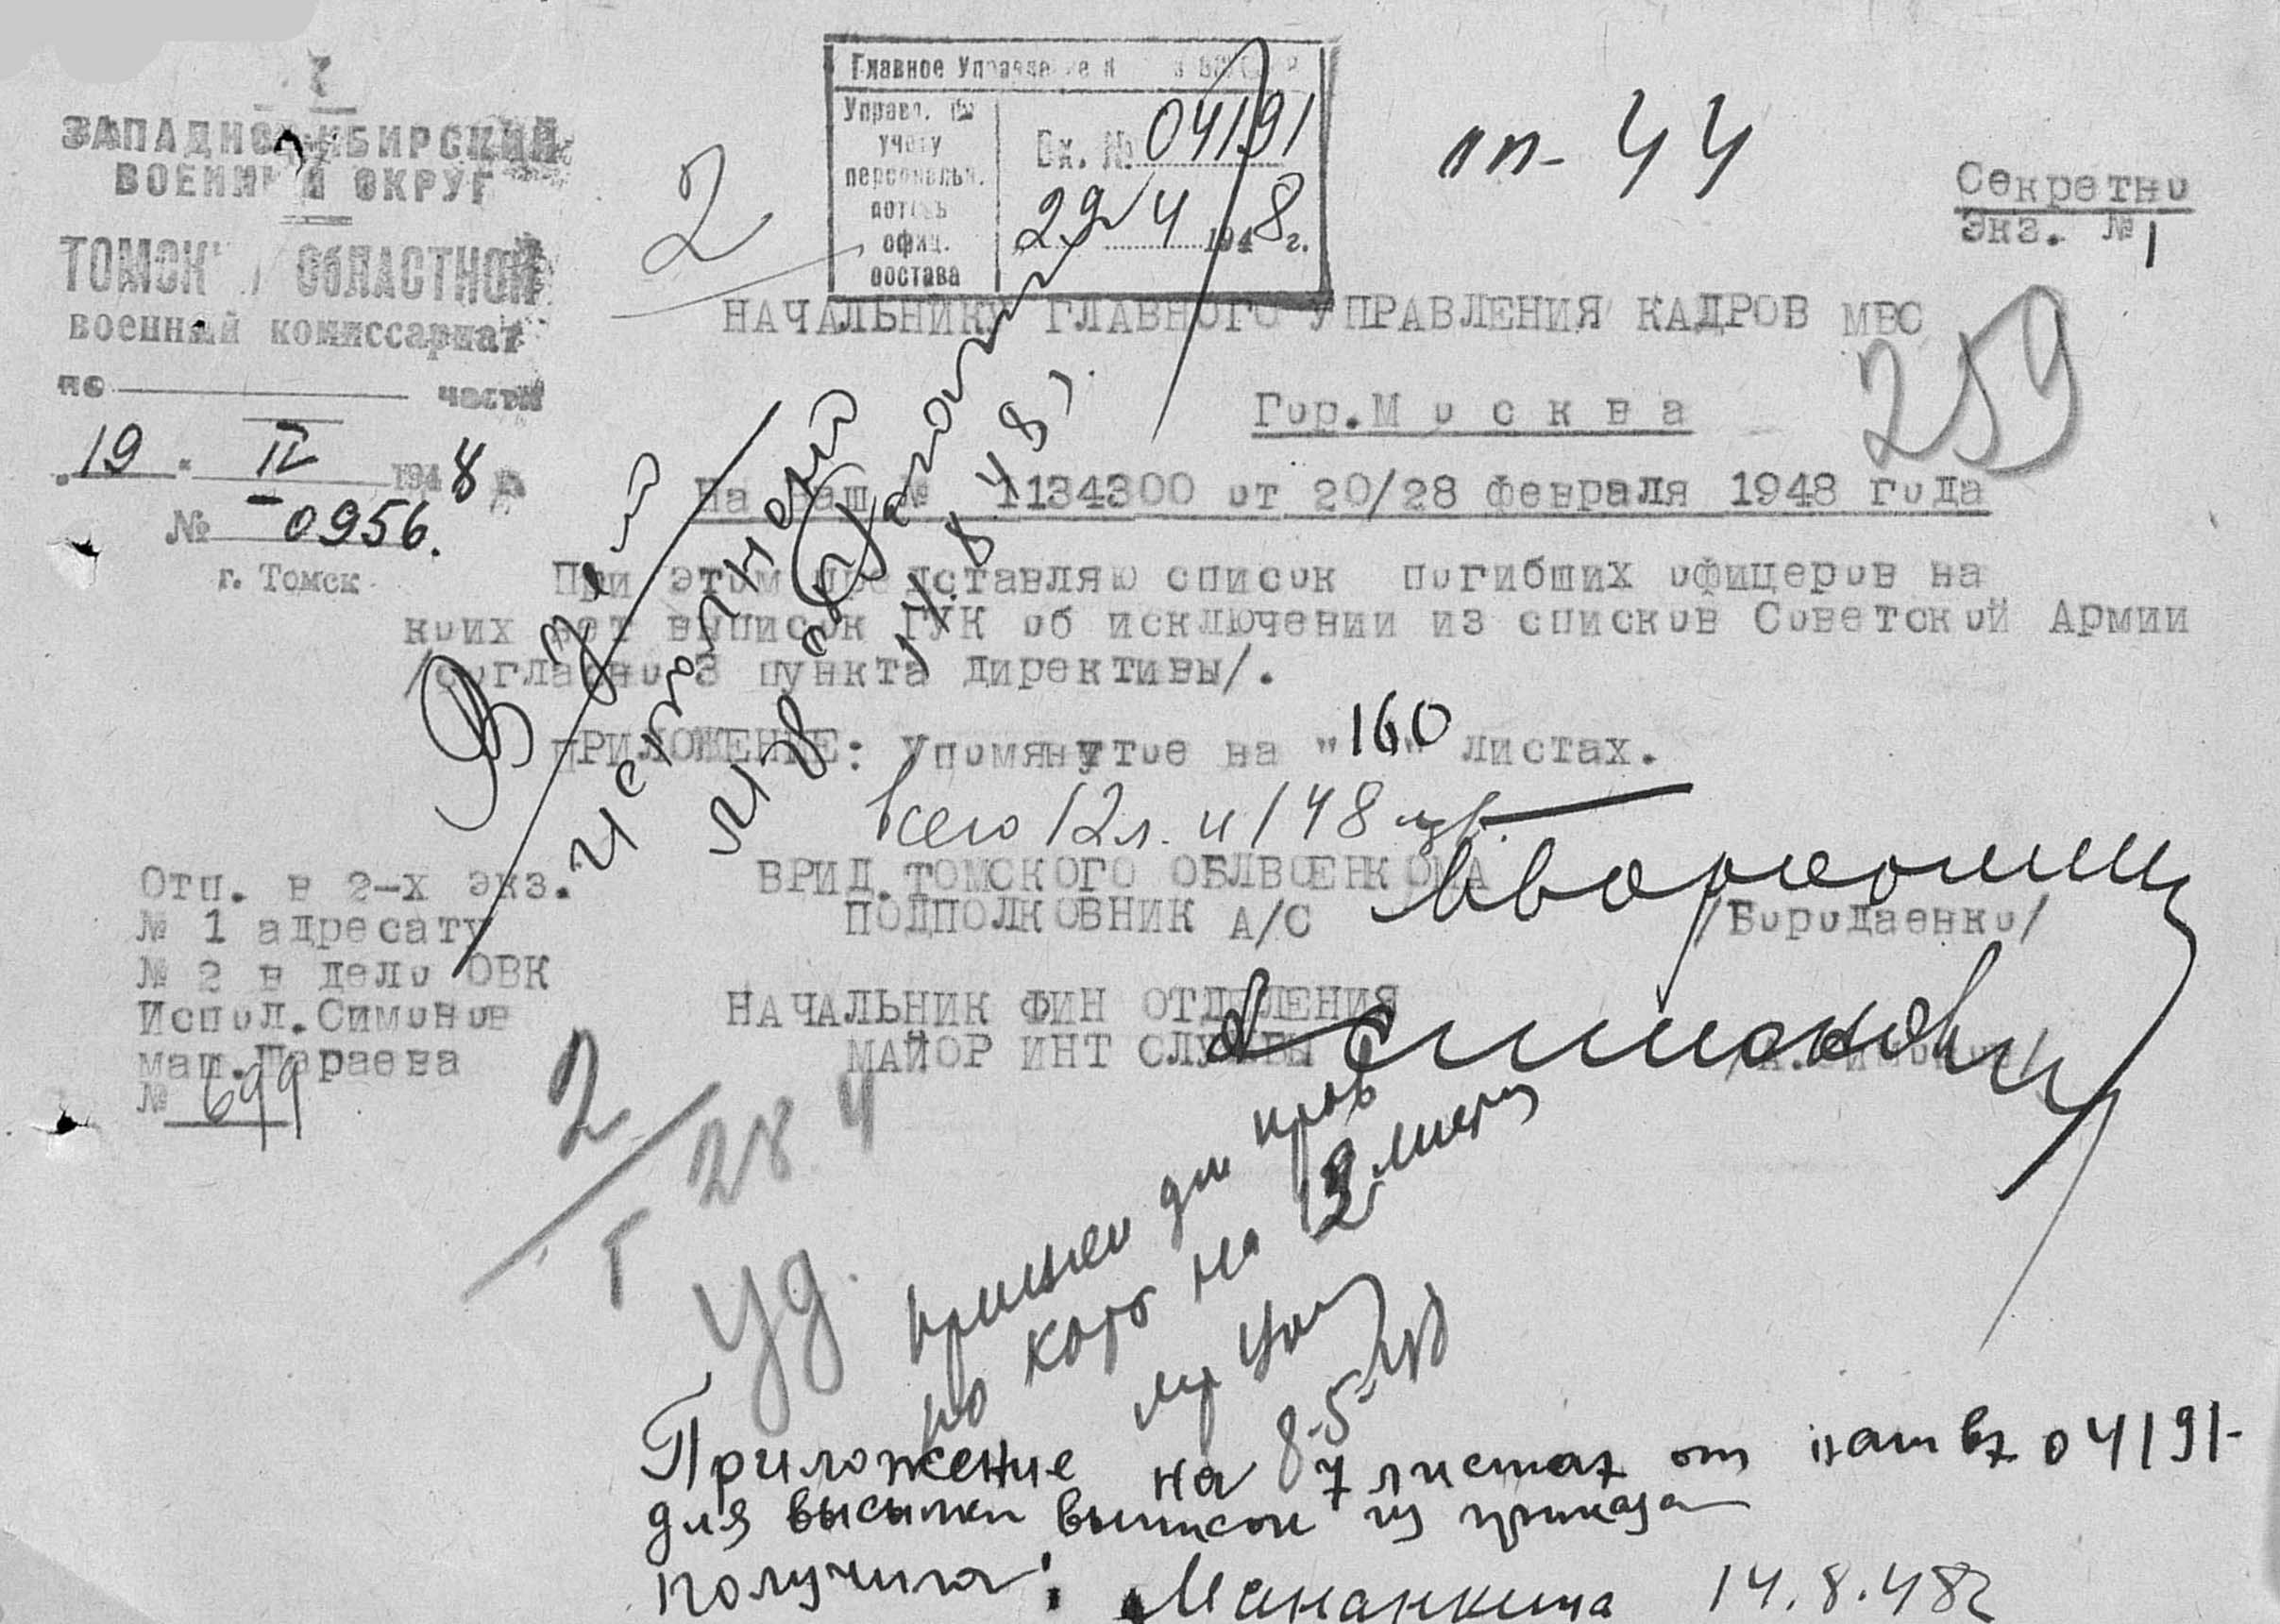 ЗАПАДНОСИБИРСКИЙ
ВОЕННЫЙ ОКРУГ
ТОМСК ОБЛАСТНОЙ
военный комиссариат
по части
19. IV 1948 г.
№ 0956.
г. Томск
Главное Управление
Управл. по учету персональн. потерь офиц. состава
Вх. № 04191
29 4 1948 г.
2
пп-44
Секретно
Экз. № 1
НАЧАЛЬНИКУ ГЛАВНОГО УПРАВЛЕНИЯ КАДРОВ МВС
259
Гор.М о с к в а
На Ваш № 1134300 от 20/28 февраля 1948 года
При этом представляю список погибших офицеров на
коих нет выписок ГУК об исключении из списков Советской Армии
/согласно 3 пункта директивы/.
ПРИЛОЖЕНИЕ: Упомянутое на "160" листах.
Всего 12 л. и 148
исполнен
14.8.48
ВРИД.ТОМСКОГО ОБЛВОЕНКОМА
ПОДПОЛКОВНИК А/С /Бородаенко/
НАЧАЛЬНИК ФИН ОТДЕЛЕНИЯ
МАЙОР ИНТ СЛУЖБЫ /А.Симонов/
Отп. в 2-х экз.
№ 1 адресату
№ 2 в дело ОВК
Испол.Симонов
маш.Шараева
№ 699
2
28 4
УД.
принял для пров
по карт на 12 листах
8.5.48
Приложение на 7 листах от вх 04191-
для высылки выписок из приказа
получила: Мананкина 14.8.48г